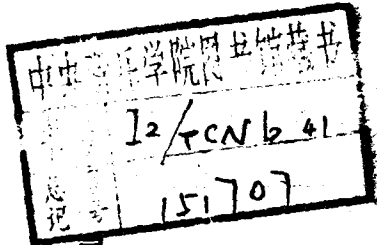 中央音乐学院图书馆藏书
I2/TCNb 41
总记号 151707